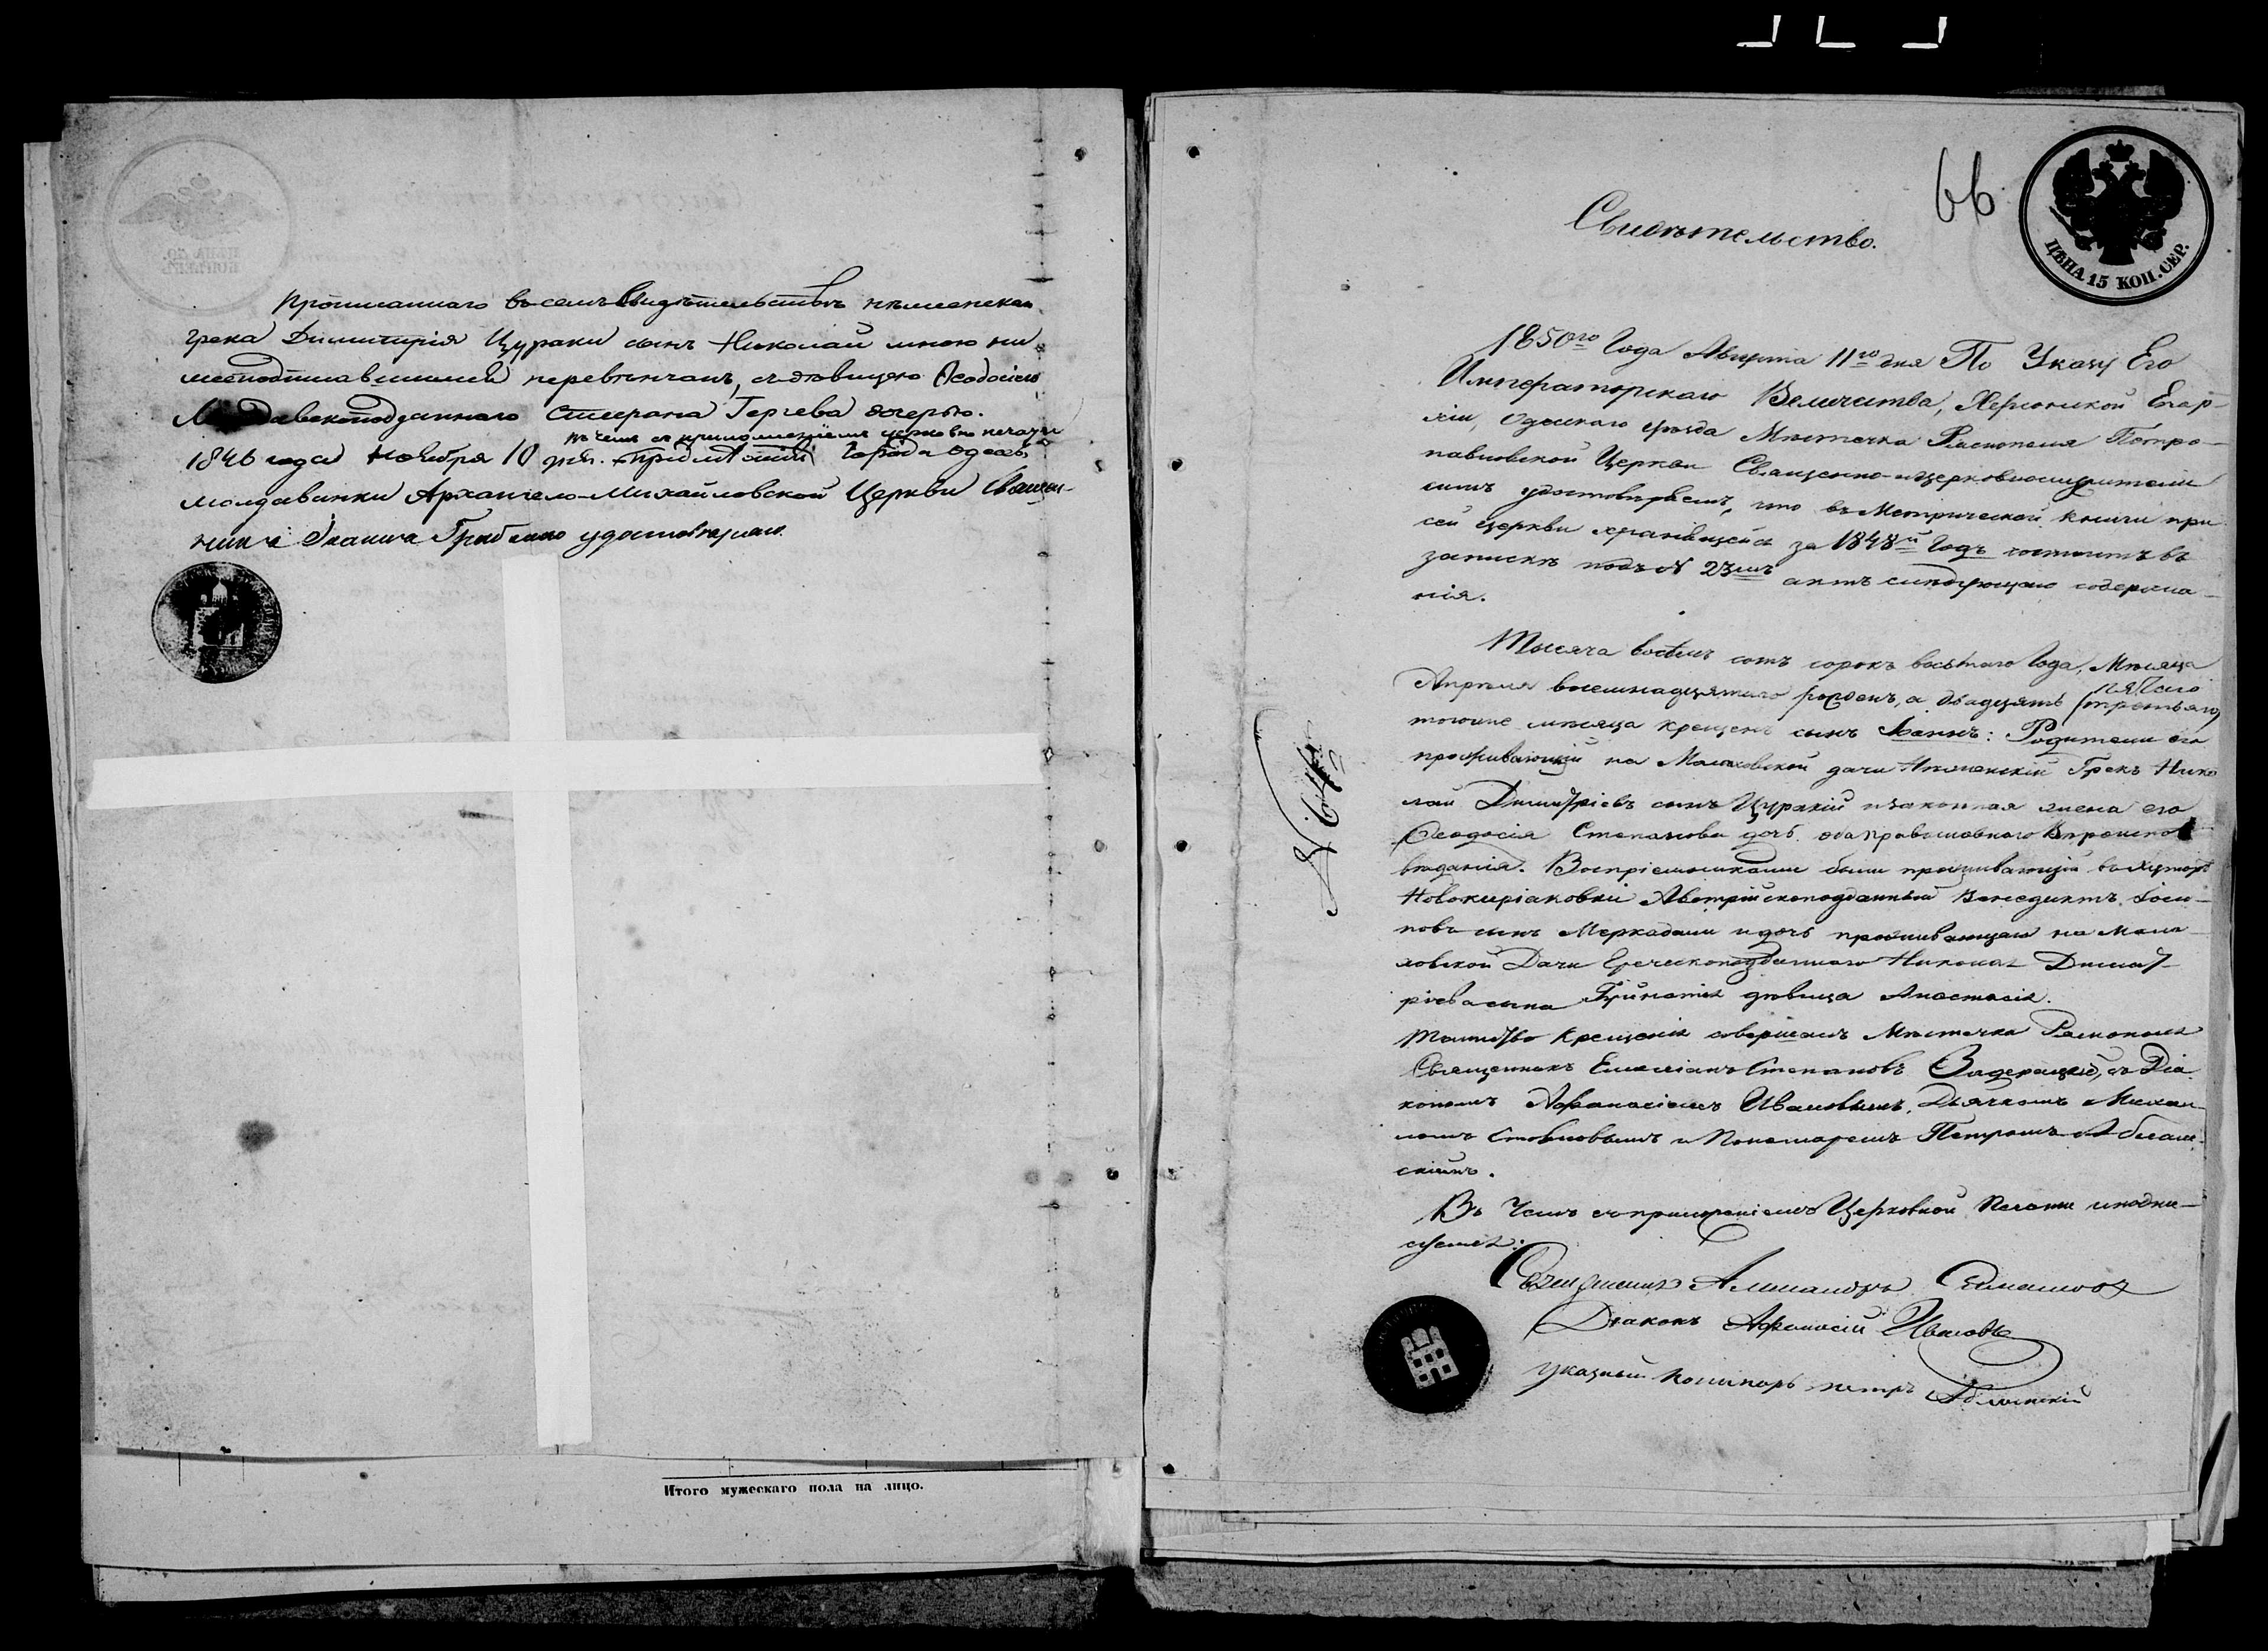 Прописаннаго въ семъ Свидѣтельствѣ нѣжинскаго
грека Димитрія Цураки сынъ Николай мною ни
жеподписавшимся перевѣнчанъ, съ дѣвицею Ѳеодосіею
Молдавскоподданнаго Стефана Гергева дочерью.
въ чемъ съ приложеніемъ церковно печати
1846 года Ноября 10 дня. Города Одессы
молдаванки Архангело-Михайловской Церкви Священ-
никъ Іоаннъ удостовѣряю.
Итого мужескаго пола на лицо.
66
ЦѢНА 15 КОП. СЕР.
Свидѣтельство.
1850го Года Августа 11го дня По Указу Его
Императорскаго Величества, Херсонской Епар-
хіи, Одесскаго уѣзда Мѣстечка Раснополя Петро-
павловской Церкви Священно-ицерковнослужители
симъ удостовѣряемъ, что въ Метрической книги при
сей церкви хранящейся за 1848й Годъ состоитъ въ
запискѣ подъ № 23мъ актъ слѣдующаго содержа-
нія.
Тысяча восемь сотъ сорокъ восьмаго Года, Мѣсяца
Апреля восемнадцятаго рожденъ, а двадцять (третьяго)
пятаго
тогоже мѣсяца крещенъ сынъ Іоаннъ: Родители его
проживающій на дачи Нѣженскій Грекъ Нико
лай Димитріевъ сынъ Цуракій изаконная жена его
Ѳеодосія Степанова дочь. оба православного Вѣроиспо-
вѣданія. Воспріемниками были проживающій въ Хуторѣ
Новокиріаковки Австрійскоподданный Венедиктъ Іоси-
повъ сынъ Меркадали идочь проживающаго на Мала-
ховской Дачи Греческоподданнаго Николая Димит-
ріева сына дѣвица Анастасія.
Таинство Крещенія совершалъ Мѣстечка Раснополя
Священникъ Емиліанъ Степановъ съ Діа
кономъ Афанасіемъ Ивановымъ, Дьячкомъ Михаи-
ломъ и Пономаремъ Петромъ Аблам-
скимъ.
Въ Чемъ съ приложеніемъ Церковной Печати иподпи-
суемся:
Священникъ Александръ
Діаконъ Афанасій Ивановъ
Указный Пономарь Петръ Абламскій
№ 64й